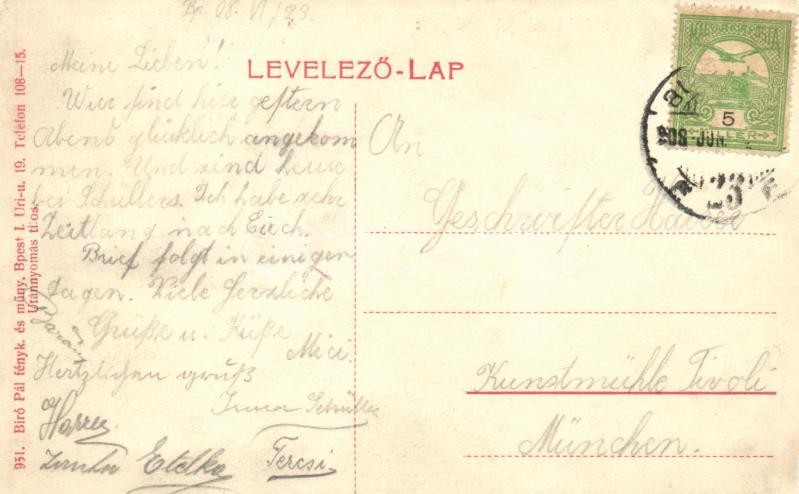 Bp. 08. VI/23.
LEVELEZŐ-LAP
Meine Lieben!
Wier sind hier gestern
Abend glücklich angekom
men. Und sind heute
bei Schüllers. Ich habe sehr
Zeitlang nach Euch.
Brief folgt in einigen
Tagen. Viele herzliche
Grüße u. Küße
Mici.
Hertzlichen gruß
Irma Schüller
Etelka Tercsi
An
Geschwister
Kunstmühle Tivoli
München.
MAGYAR KIR. POSTA
5
FILLER
908 JUN.
951. Biró Pál fényk. és műny. Bpest I. Uri-u. 19. Telefon 108—15.
Utánnyomás tilos.